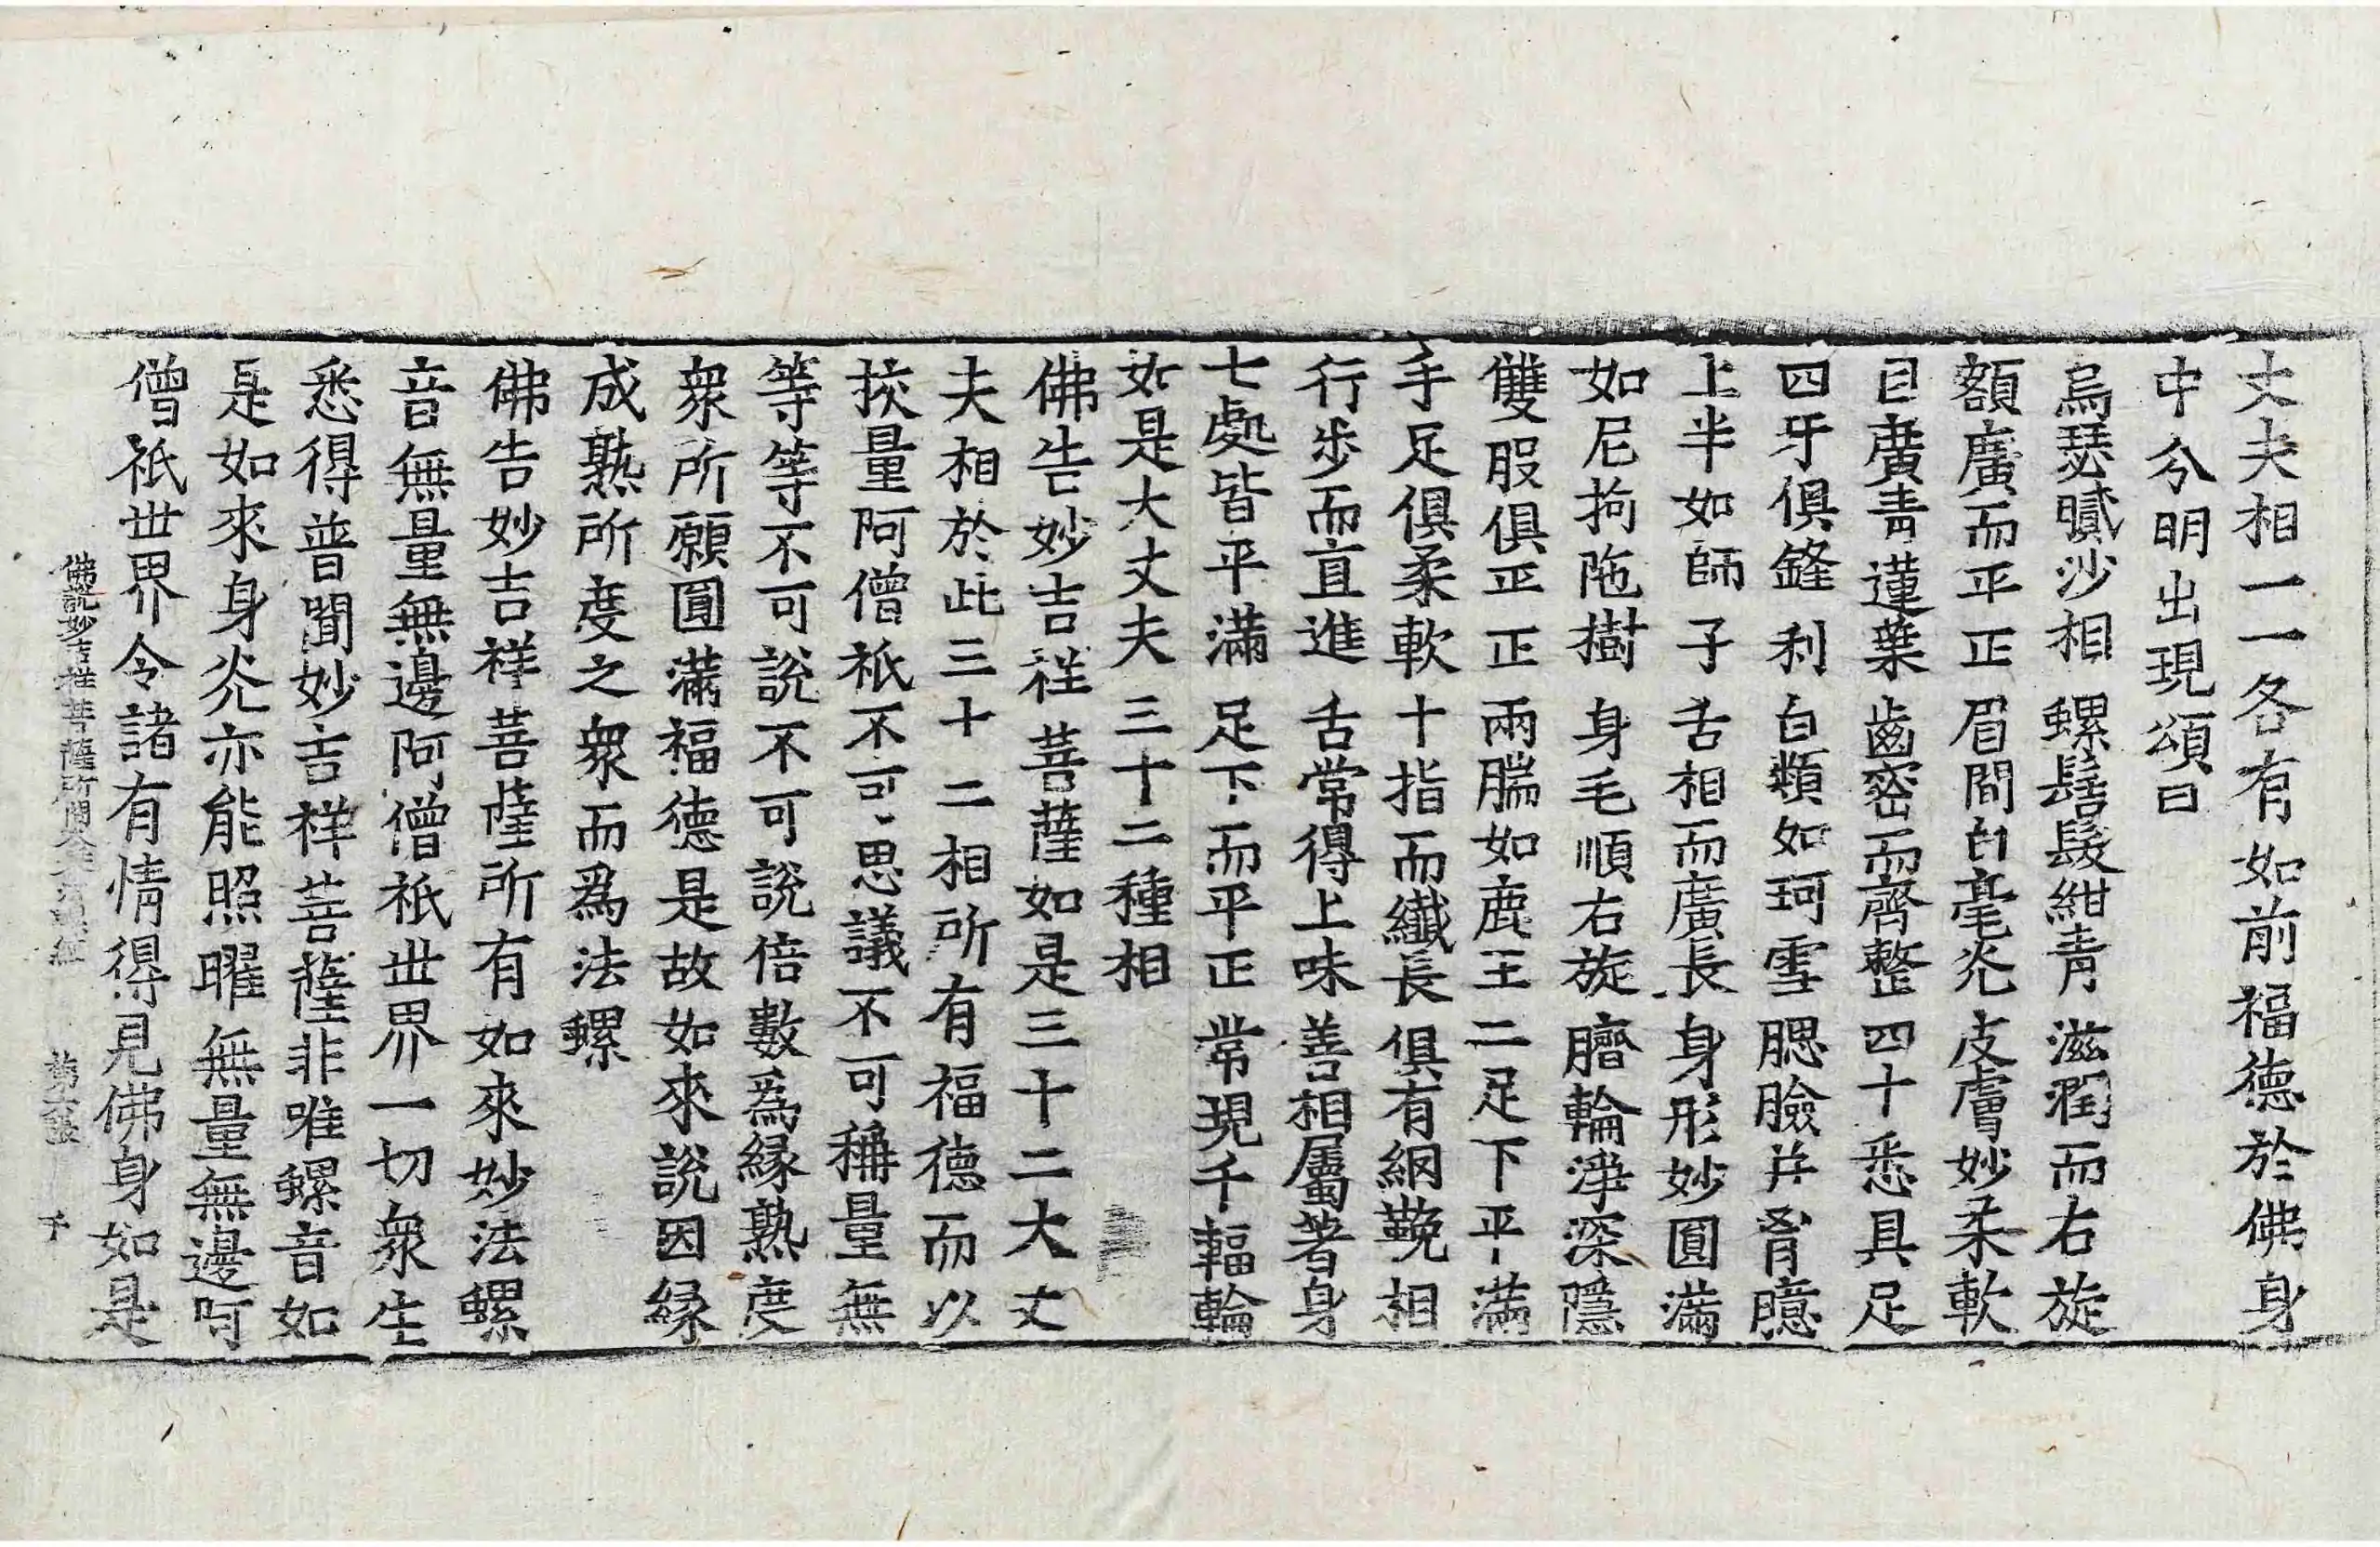 丈夫相一一各有如前福德於佛身
中分明出現頌曰
烏瑟膩沙相 螺髻髮紺青 滋潤而右旋
額廣而平正 眉間白毫光 皮膚妙柔軟
目廣青蓮葉 齒密而齊整 四十悉具足
四牙俱鋒利 白類如珂雪 腮臉并胷臆
上半如師子 舌相而廣長 身形妙圓滿
如尼拘陁樹 身毛順右旋 臍輪淨深隱
雙服俱正正 兩腨如鹿王 二足下平滿
手足俱柔軟 十指而纖長 俱有網鞔相
行步而直進 舌常得上味 善相屬著身
七處皆平滿 足下而平正 常現千輻輪
如是大丈夫 三十二種相
佛告妙吉祥菩薩如是三十二大丈
夫相於此三十二相所有福德而以
挍量阿僧祇不可思議不可稱量無
等等不可說不可說倍數爲緣熟度
衆所願圓滿福德是故如來說因緣
成熟所度之衆而爲法螺
佛告妙吉祥菩薩所有如來妙法螺
音無量無邊阿僧祇世界一切衆生
悉得普聞妙吉祥菩薩非唯螺音如
是如來身光亦能照曜無量無邊阿
僧祇世界令諸有情得見佛身如是
佛說妙吉祥菩薩所問大乘法螺經 第六張 千